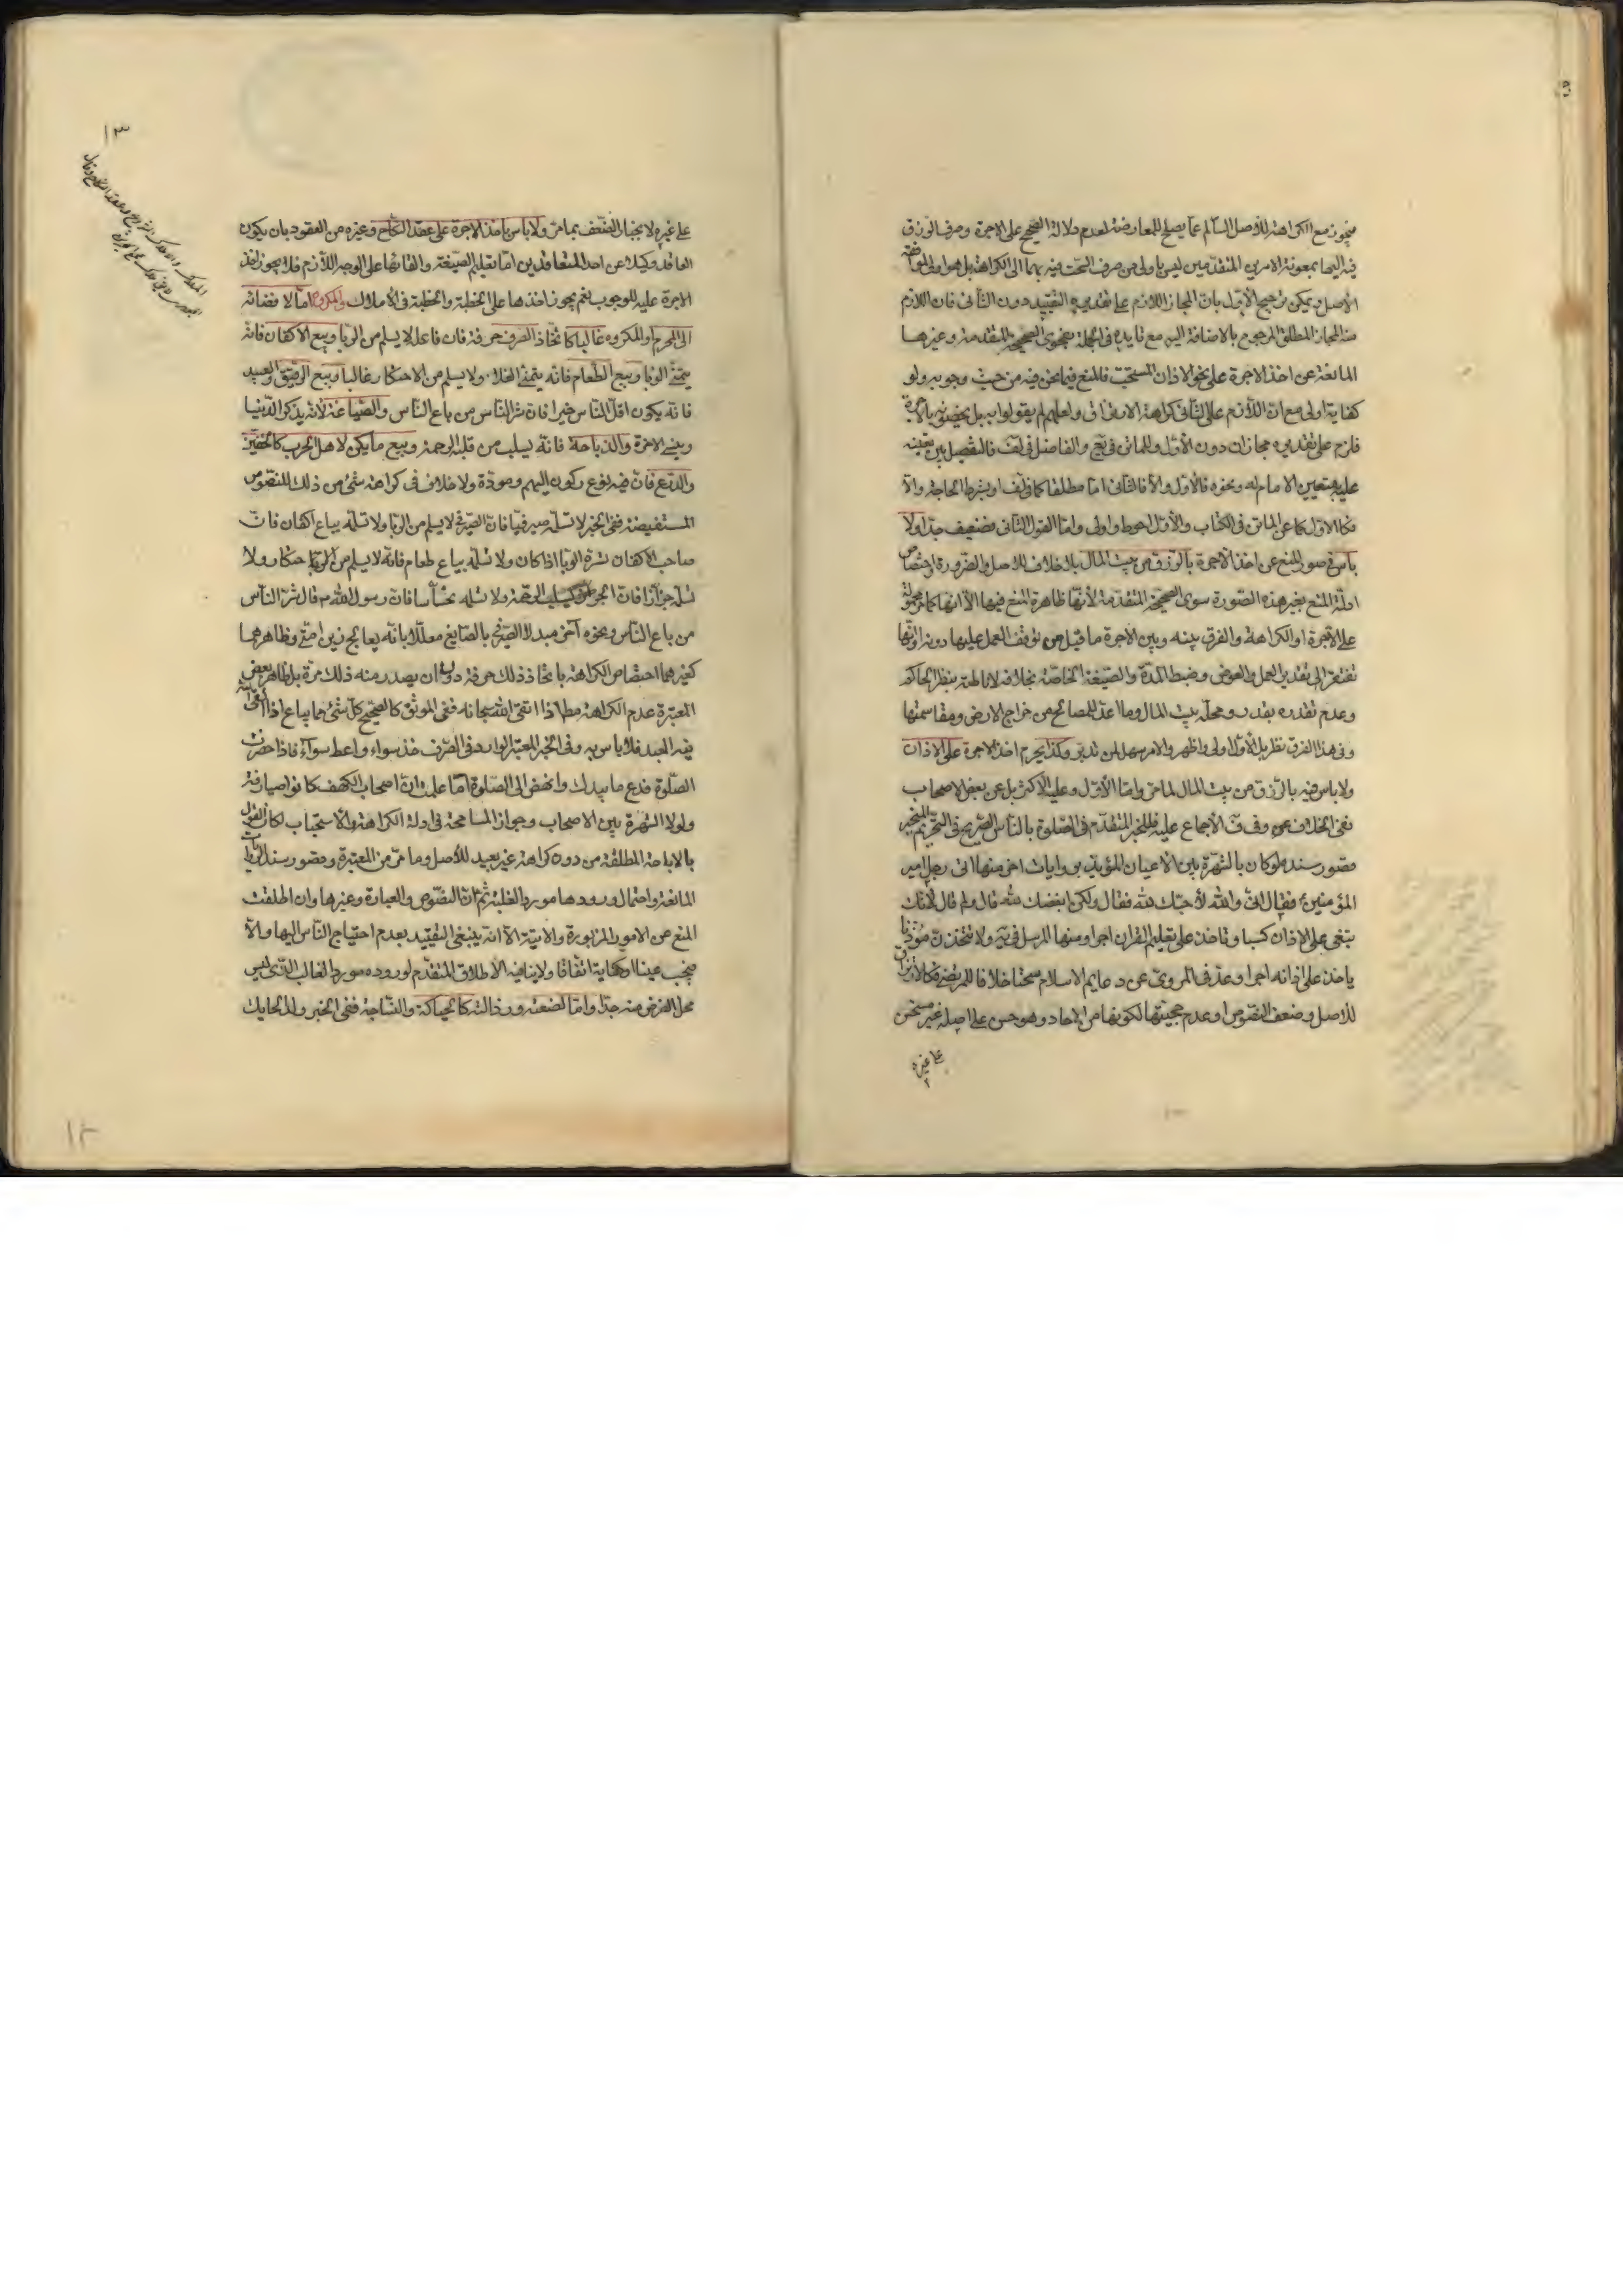 فيجوز مع الكراهة للأصل السالم عما يصلح للمعارضة لعدم دلالة الصحيح على الاجرة وصرف الرزق
فيه اليها بمعونة الامرين المتقدمين ليس باولى من صرف السحت فيه بهما الى الكراهة بل هو اولى لموافقة
الاصل ويمكن ترجيح الأول بان المجاز اللازم على تقديره التقييد دون الثانى فان اللازم
منه المجاز المطلق المرجوح بالاضافة اليه مع تايده فى الجملة بفحوى الصحيحة المتقدمة وغيرها
المانعة عن اخذ الاجرة على نحو الاذان المستحب فالمنع فيما نحن فيه من حيث وجوبه ولو
كفاية اولى مع ان اللازم على الثانى كراهة الارتزاق ولعلهم لم يقولوا به بل يخصونه بالاجرة
فلزم على تقديره مجازان دون الأول وللماتن فى يع والفاضل فى لف فالتفصيل بين تعينه
عليه بتعيين الامام له ونحوه فالأول والا فالثانى اما مطلقا كما فى لف او بشرط الحاجة والا
فكالاول كما عن الماتن فى الكتاب والأول احوط واولى واما القول الثانى فضعيف جدا ولا
بأس فى صور المنع عن اخذ الاجرة بالرزق من بيت المال بلا خلاف للاصل والضرورة واختصاص
ادلة المنع بغير هذه الصورة سوى الصحيحة المتقدمة لأنها ظاهرة المنع فيها الا انها كما مر محمولة
على الاجرة او الكراهة والفرق بينه وبين الاجرة ما قيل من توقف العمل عليها دونه او انها
تفتقر الى تقدير العمل والعوض وضبط المدة والصيغة الخاصة بخلافه لاناطته بنظر الحاكم
وعدم تقدره بقدر ومحله بيت المال وما اعد للمصالح من خراج الارض ومقاسمتها
وفى هذا الفرق نظر بل الأول اولى واظهر والامر سهل لمن تدبر وكذا يحرم اخذ الاجرة على الاذان
ولا باس فيه بالرزق من بيت المال لما مر واما الأول وعليه الاكثر بل عن بعض الاصحاب
نفى الخلاف عنه وفى ف الاجماع عليه فللخبر المتقدم فى الصلوة بالناس الصريح فى التحريم المنجبر
قصور سنده لو كان بالشهرة بين الاعيان المؤيد بروايات اخر منها اتى رجل امير
المؤمنين ع فقال انى والله لأحبك لله فقال ولكن ابغضك لله قال ولم قال لانك
تبغى على الاذان كسبا وتاخذ على تعليم القرآن اجرا ومنها المرسل فى يه ولا تتخذن مؤذنا
ياخذ على اذانه اجرا وعد فى المروى عن دعايم الاسلام سحتا خلافا للمرتضى فكالارتزاق
للاصل وضعف النصوص او عدم حجيتها لكونها من الاحاد وهو حسن على اصله غير مستحسن
على غيره
١٣
على غيره لانجبار الضعف بما مر ولا باس باخذ الاجرة على عقد النكاح وغيره من العقود بان يكون
العاقد وكيلا عن احد المتعاقدين اما تعليم الصيغة والقائها على الوجه اللازم فلا يجوز اخذ
الاجرة عليه للوجوب نعم يجوز اخذها على الخطبة والخطبة فى الاملاك والمكروه اما لافضائه
الى المحرم او المكروه غالبا كاتخاذ الصرف حرفة فان فاعله لا يسلم من الربا وبيع الاكفان فانه
يتمنى الوباء وبيع الطعام فانه يتمنى الغلاء ولا يسلم من الاحتكار غالبا وبيع الرقيق والعبيد
فانه يكون اقل الناس خيرا فان شر الناس من باع الناس والصياغة لانه يذكر الدنيا
وينسى الاخرة والذباحة فانه يسلب من قلبه الرحمة وبيع ما يكن لاهل الحرب كالخفين
والدرع فان فيه نوع ركون اليهم ومودة ولا خلاف فى كراهة شئ من ذلك للنصوص
المستفيضة ففى الخبر لا تسلمه صيرفيا فان الصيرفى لا يسلم من الربا ولا تسلمه بياع اكفان فان
صاحب الاكفان تسره الوبا اذا كان ولا تسلمه بياع طعام فانه لا يسلم من الاحتكار ولا
تسلمه جزارا فان الجزار تسلب الرحمة ولا تسلمه نخاسا فان رسول الله ص قال شر الناس
من باع الناس ونحوه آخر مبدلا الصيرفى بالصايغ معللا بانه يعالج زين امتى وظاهرهما
كغيرهما اختصاص الكراهة باتخاذ ذلك حرفة دون ان يصدر منه ذلك مرة بل ظاهر بعض
المعتبرة عدم الكراهة مط اذا اتقى الله سبحانه ففى الموثق كالصحيح كل شئ مما يباع اذا اتقى الله
فيه العبد فلا باس به وفى الخبر المعتبر الوارد فى الصرف خذ سواء واعط سواء فاذا حضرت
الصلوة فدع ما بيدك وانهض الى الصلوة اما علمت ان اصحاب الكهف كانوا صيارفة
ولولا الشهرة بين الاصحاب وجواز المسامحة فى ادلة الكراهة والاستحباب لكان القول
بالاباحة المطلقة من دون كراهة غير بعيد للأصل وما مر من المعتبرة وقصور سند الروايات
المانعة واحتمال ورودها مورد الغلبة ثم ان النصوص والعبارة وغيرها وان اطلقت
المنع عن الامور المزبورة والاتية الا انه ينبغى التقييد بعدم احتياج الناس اليها والا
فيجب عينا او كفاية اتفاقا ولا ينافيه الاطلاق المتقدم لوروده مورد الغالب الذى ليس
محل الفرض منه جدا واما لضعته ورذالته كالحياكة والنساجة ففى الخبر ولد الحايك
١٢